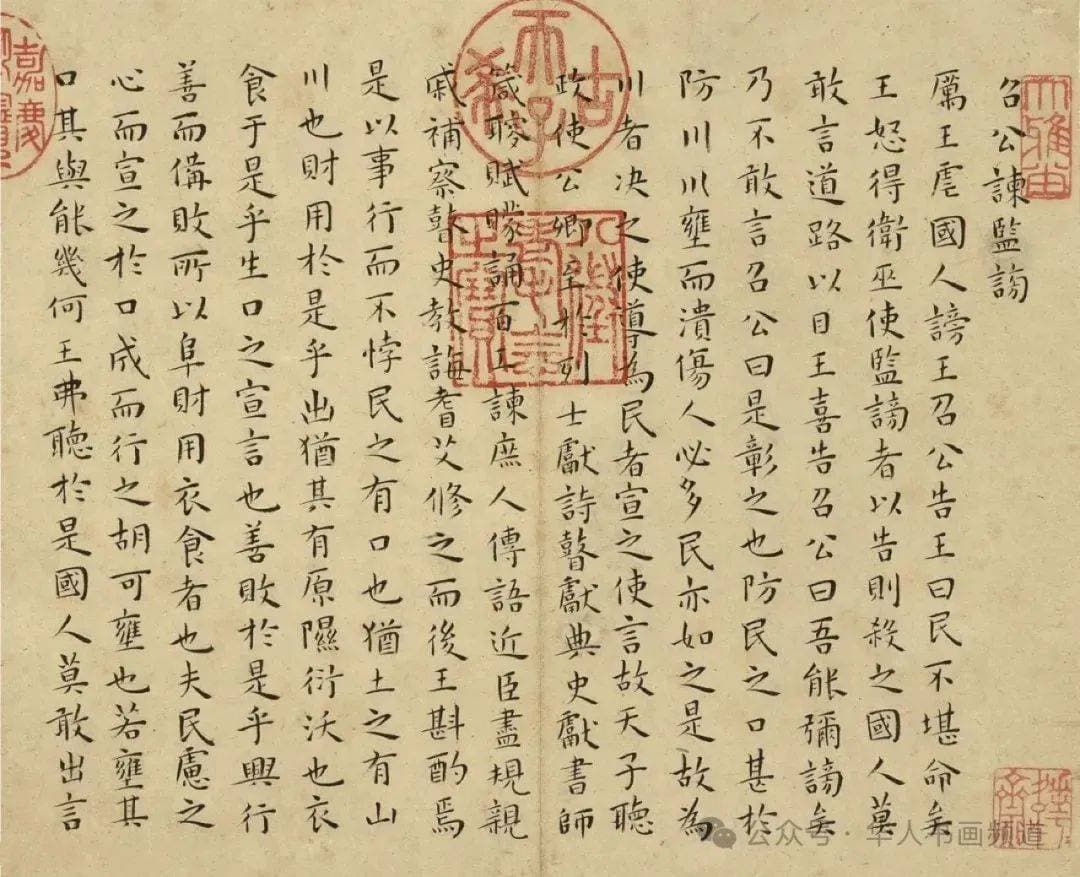 召公諫監謗
厲王虐國人謗王召公告王曰民不堪命矣
王怒得衛巫使監謗者以告則殺之國人莫
敢言道路以目王喜告召公曰吾能彌謗矣
乃不敢言召公曰是彰之也防民之口甚於
防川川壅而潰傷人必多民亦如之是故為
川者決之使導為民者宣之使言故天子聽
政使公卿至於列士獻詩瞽獻典史獻書師
箴瞍賦矇誦百工諫庶人傳語近臣盡規親
戚補察瞽史教誨耆艾修之而後王斟酌焉
是以事行而不悖民之有口也猶土之有山
川也財用於是乎出猶其有原隰衍沃也衣
食于是乎生口之宣言也善敗於是乎興行
善而備敗所以阜財用衣食者也夫民慮之
心而宣之於口成而行之胡可壅也若壅其
口其與能幾何王弗聽於是國人莫敢出言
古希天子
八徵耄念之寶
嘉慶
公众号·华人书画频道